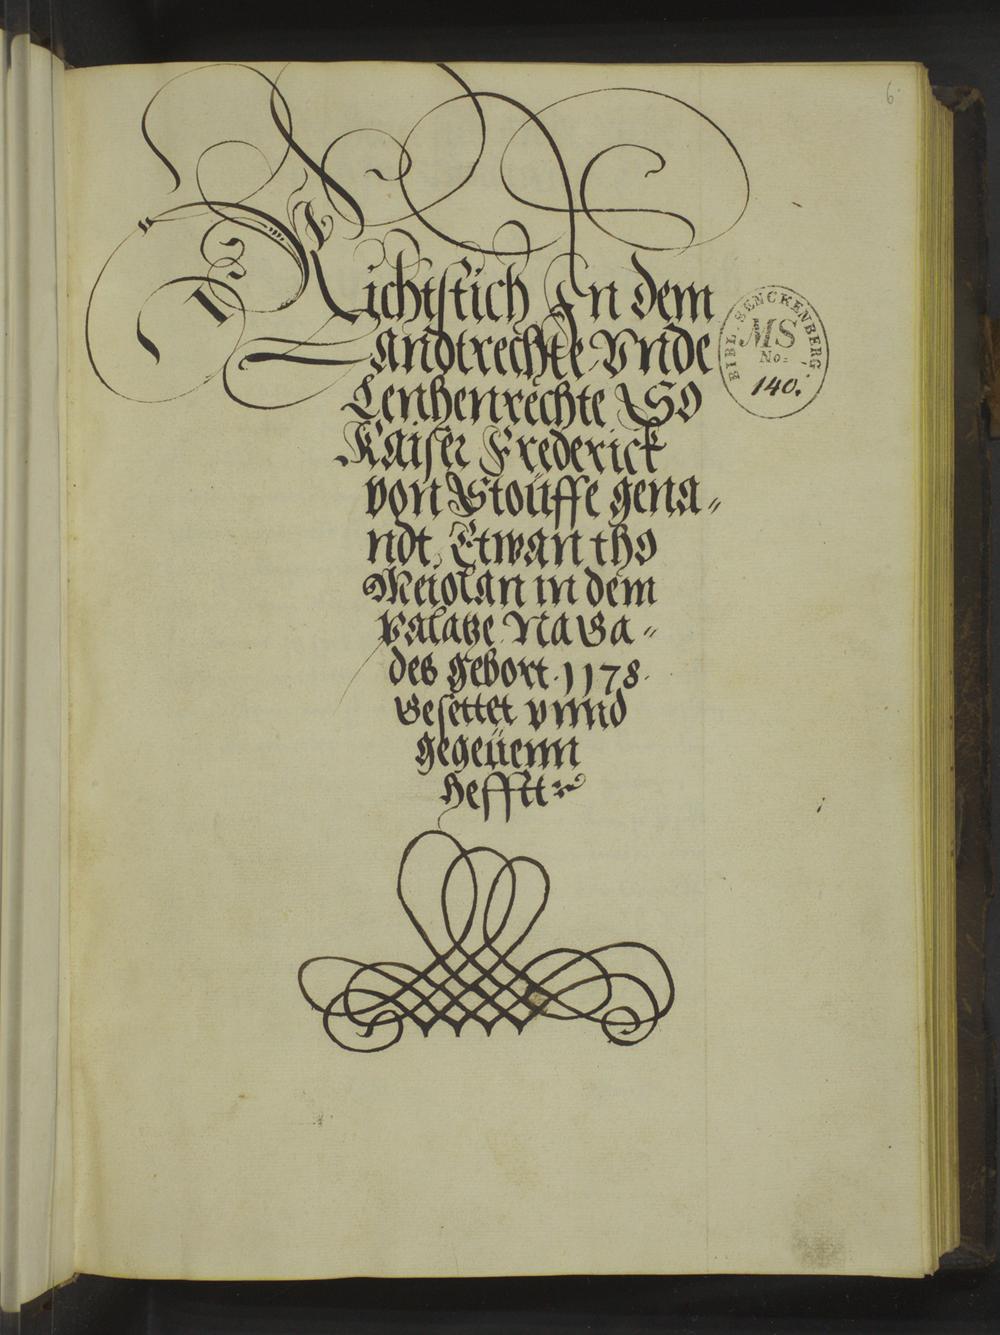 6
Richtstich In dem
Landtrechte Vnde
Lenhenrechte So
Kaiser Frederick
von Stoüffe gena„
ndt, Etwan tho
Meiolan in dem
Palatze Na Ga„
des gebort 1178.
Gesettet vnnd
gegeüenn
hefftt
BIBL. SENCKENBERG.
MS
No=
140.